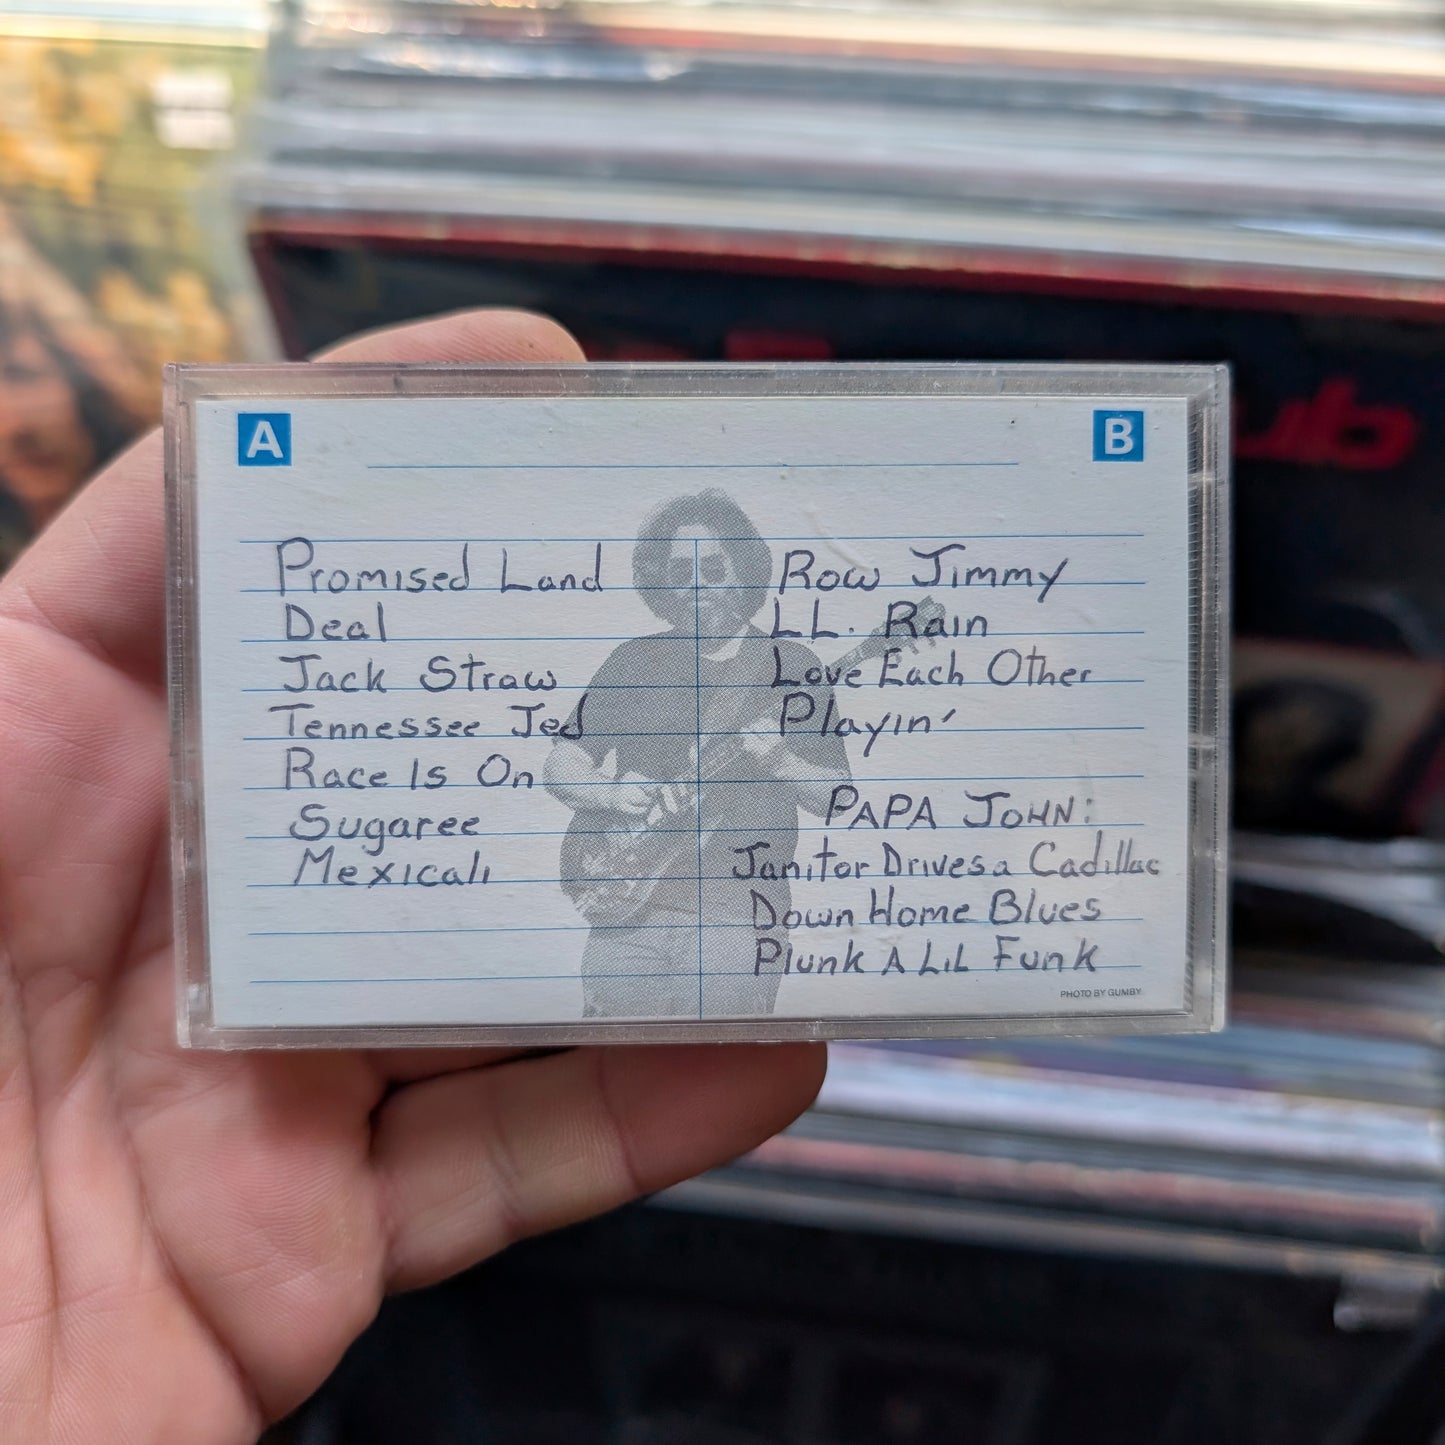 A
B
Promised Land
Deal
Jack Straw
Tennessee Jed
Race Is On
Sugaree
Mexicali
Row Jimmy
LL. Rain
Love Each Other
Playin'
PAPA JOHN:
Janitor Drives a Cadillac
Down Home Blues
Plunk A Lil Funk
PHOTO BY GUMBY
ub